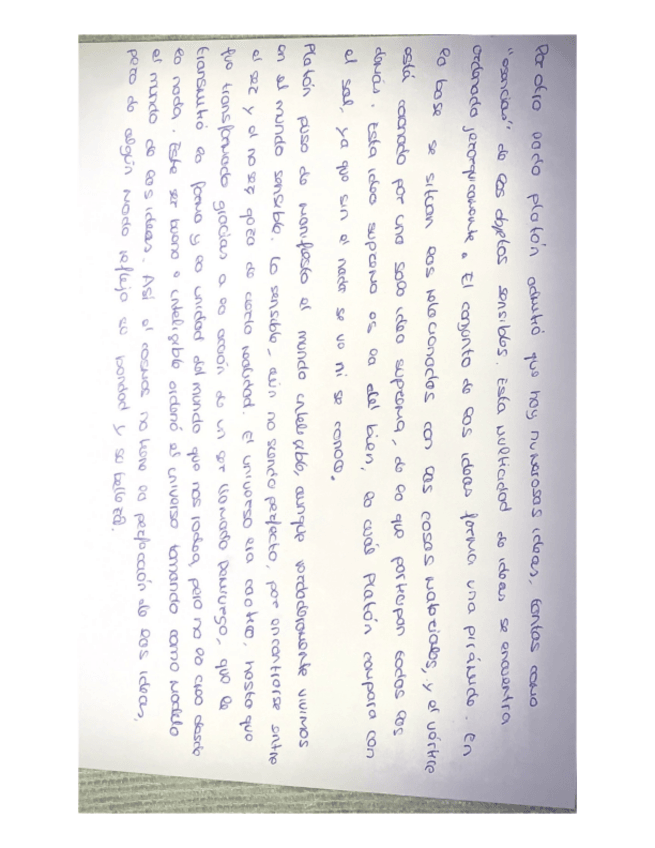 Por otro lado platón admitió que hay numerosas ideas, tantas como
"esencias" de los objetos sensibles. Esta multicidad de ideas se encuentra
ordenada jerárquicamente. El conjunto de las ideas forma una pirámide. En
la base se situan las relacionadas con las cosas materiales, y el vórtice
está coronado por una sola idea suprema, de la que participan todas las
demás. Esta idea suprema es la del bien, la cuál Platón compara con
el sol, ya que sin el nada se ve ni se conoce.
Platón puso de manifiesto el mundo inteligible, aunque verdaderamente vivimos
en el mundo sensible. Lo sensible, aún no siendo perfecto, por encontrarse entre
el ser y el no ser goza de cierta realidad. El universo era caotico, hasta que
fue transformado gracias a la acción de un ser llamado Demiurgo, que le
transmitió la forma y la unidad del mundo que nos rodea, pero no la creo desde
la nada. Este ser bueno e inteligible ordenó el universo tomando como modelo
el mundo de las ideas. Así el cosmos no tiene la perfección de las ideas,
pero de algún modo refleja su bondad y su belleza.